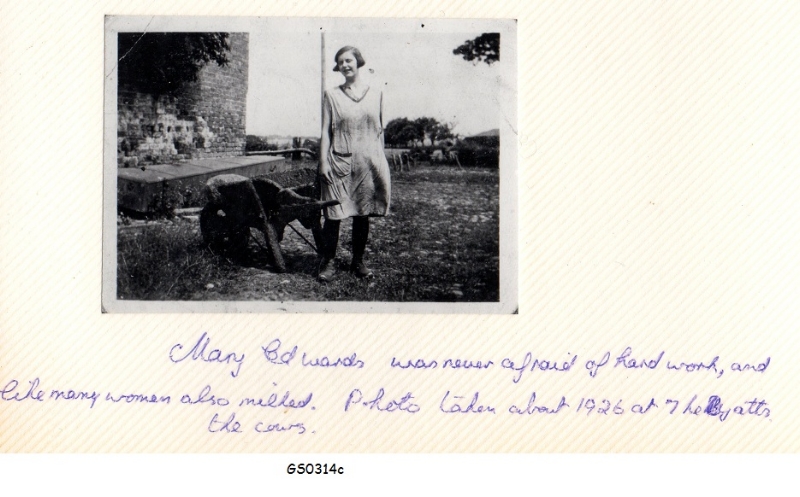 Mary Edwards was never afraid of hard work, and
like many women also milked. Photo taken about 1926 at The Byatts
the cows.
GS0314c